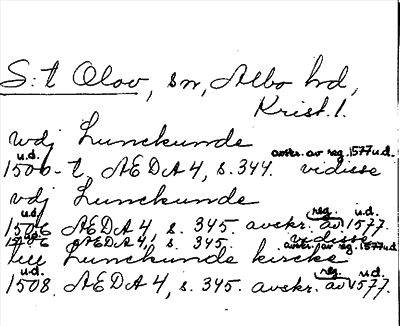 S:t Olov, sn, Albo hd,
Krist. l.
wdj Lunckunde
u.d. avskr. av reg. 1577 u.d.
1506-t, ÆDA 4, s. 344. vidisse
vdj Lunckunde
u.d. reg. u.d.
1506 ÆDA 4, s. 345. avskr. av 1577.
u.d. vidisse
1506 ÆDA 4, s. 345. avskr. av reg. 1577 u.d.
till Lunckunde kircke
u.d. reg. u.d.
1508. ÆDA 4, s. 345. avskr. av 1577.